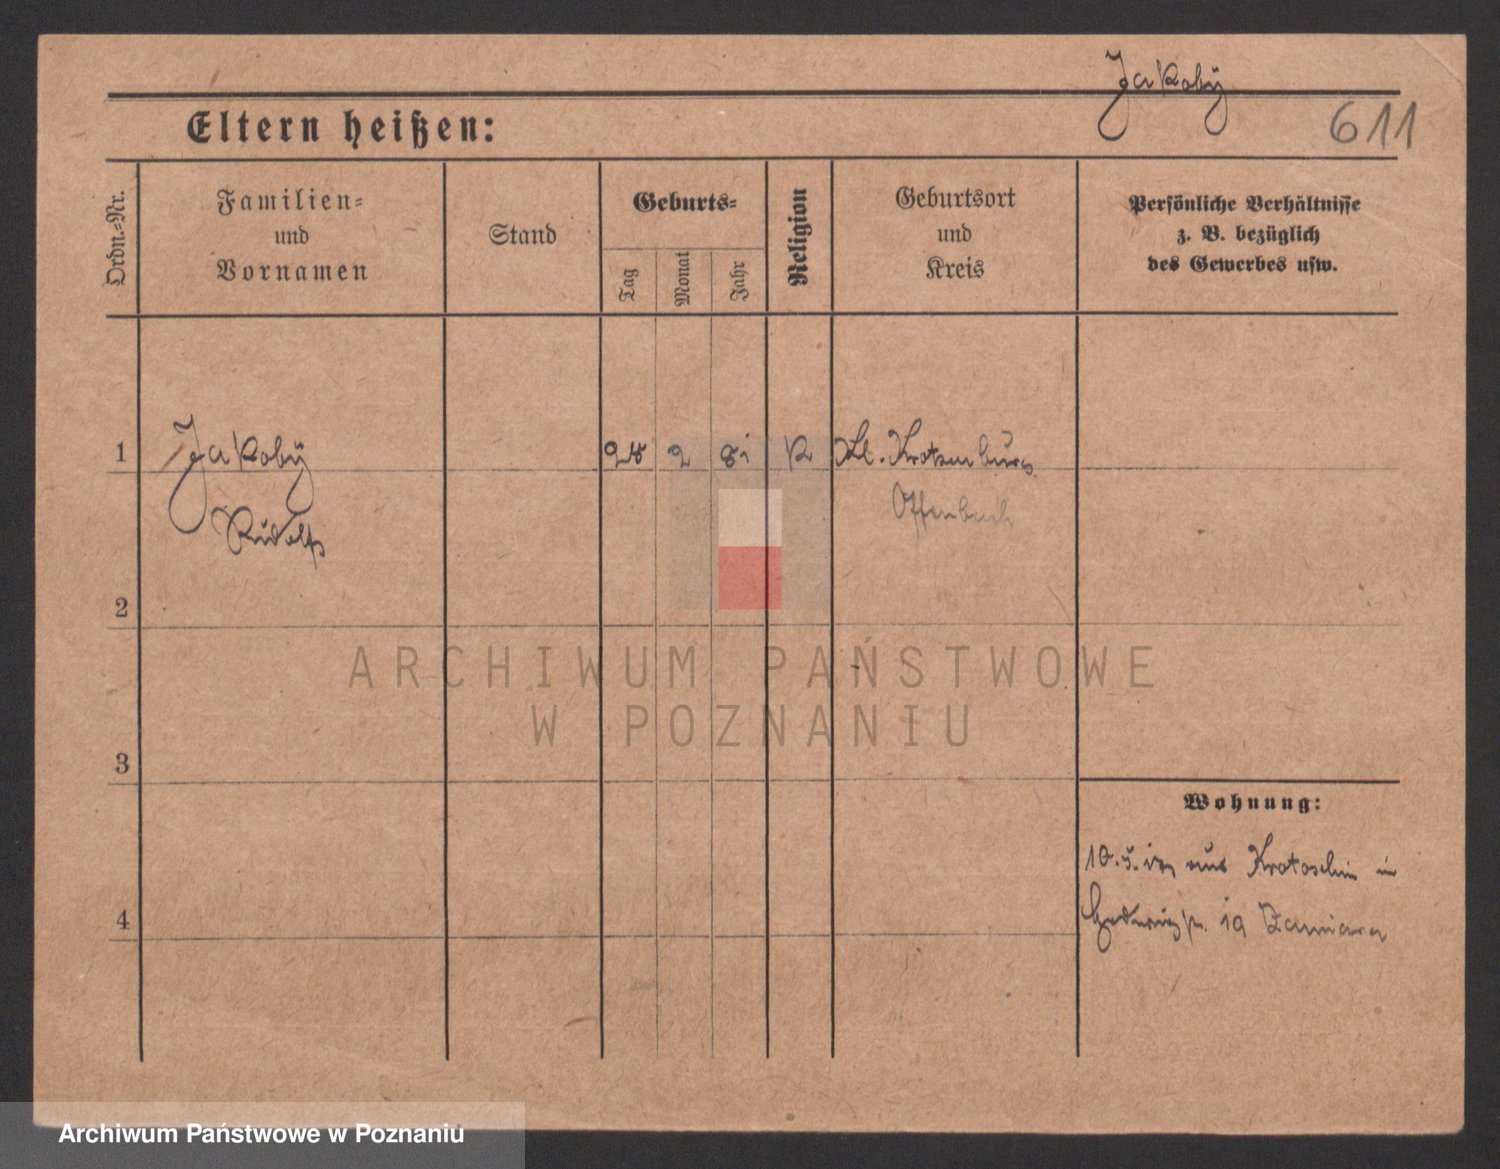 Jakoby
611
Eltern heißen:
Ordn.-Nr.
Familien-
und
Vornamen
Stand
Geburts-
Tag
Monat
Jahr
Religion
Geburtsort
und
Kreis
Persönliche Verhältnisse
z. B. bezüglich
des Gewerbes usw.
1
Jakoby
28 2 81 K Kl. Krotzenburg
Rudolf
Offenbach
2
ARCHIWUM PAŃSTWOWE
W POZNANIU
3
Wohnung:
aus Krotoschin in
4
Archiwum Państwowe w Poznaniu